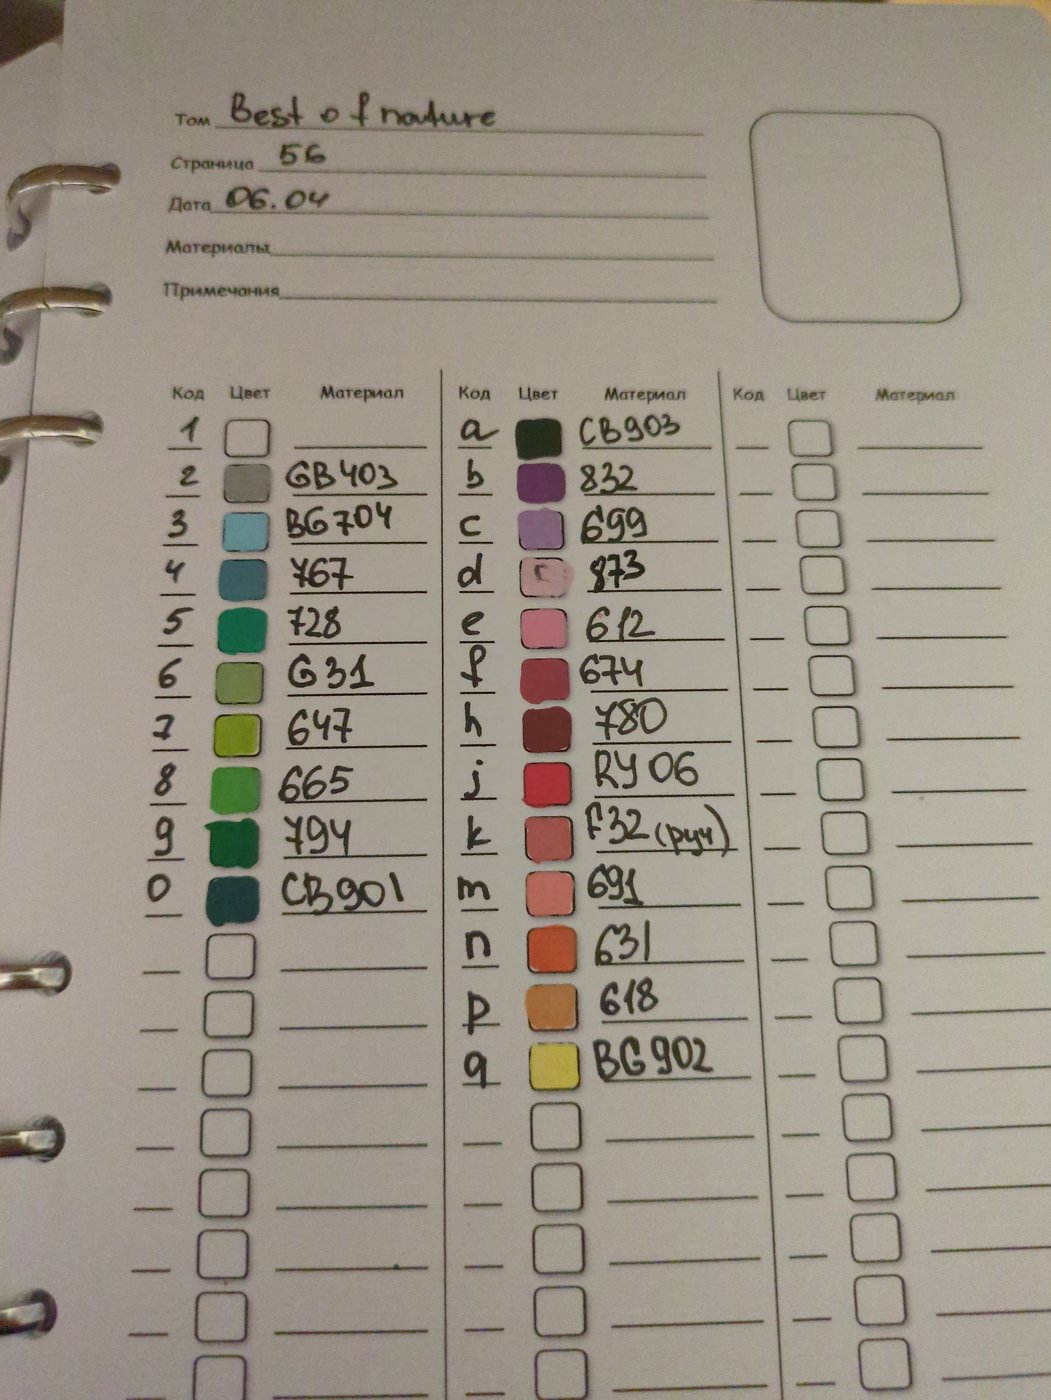 Том Best of nature
Страница 56
Дата 06.04
Материалы
Примечания
Код Цвет Материал Код Цвет Материал Код Цвет Материал
1 a CB903
2 GB403 b 832
3 BG704 c 699
4 767 d c 873
5 728 e 612
6 G31 f 674
7 647 h 780
8 665 j RY06
9 794 k F32 (руч)
0 CB901 m 691
n 631
p 618
q BG902